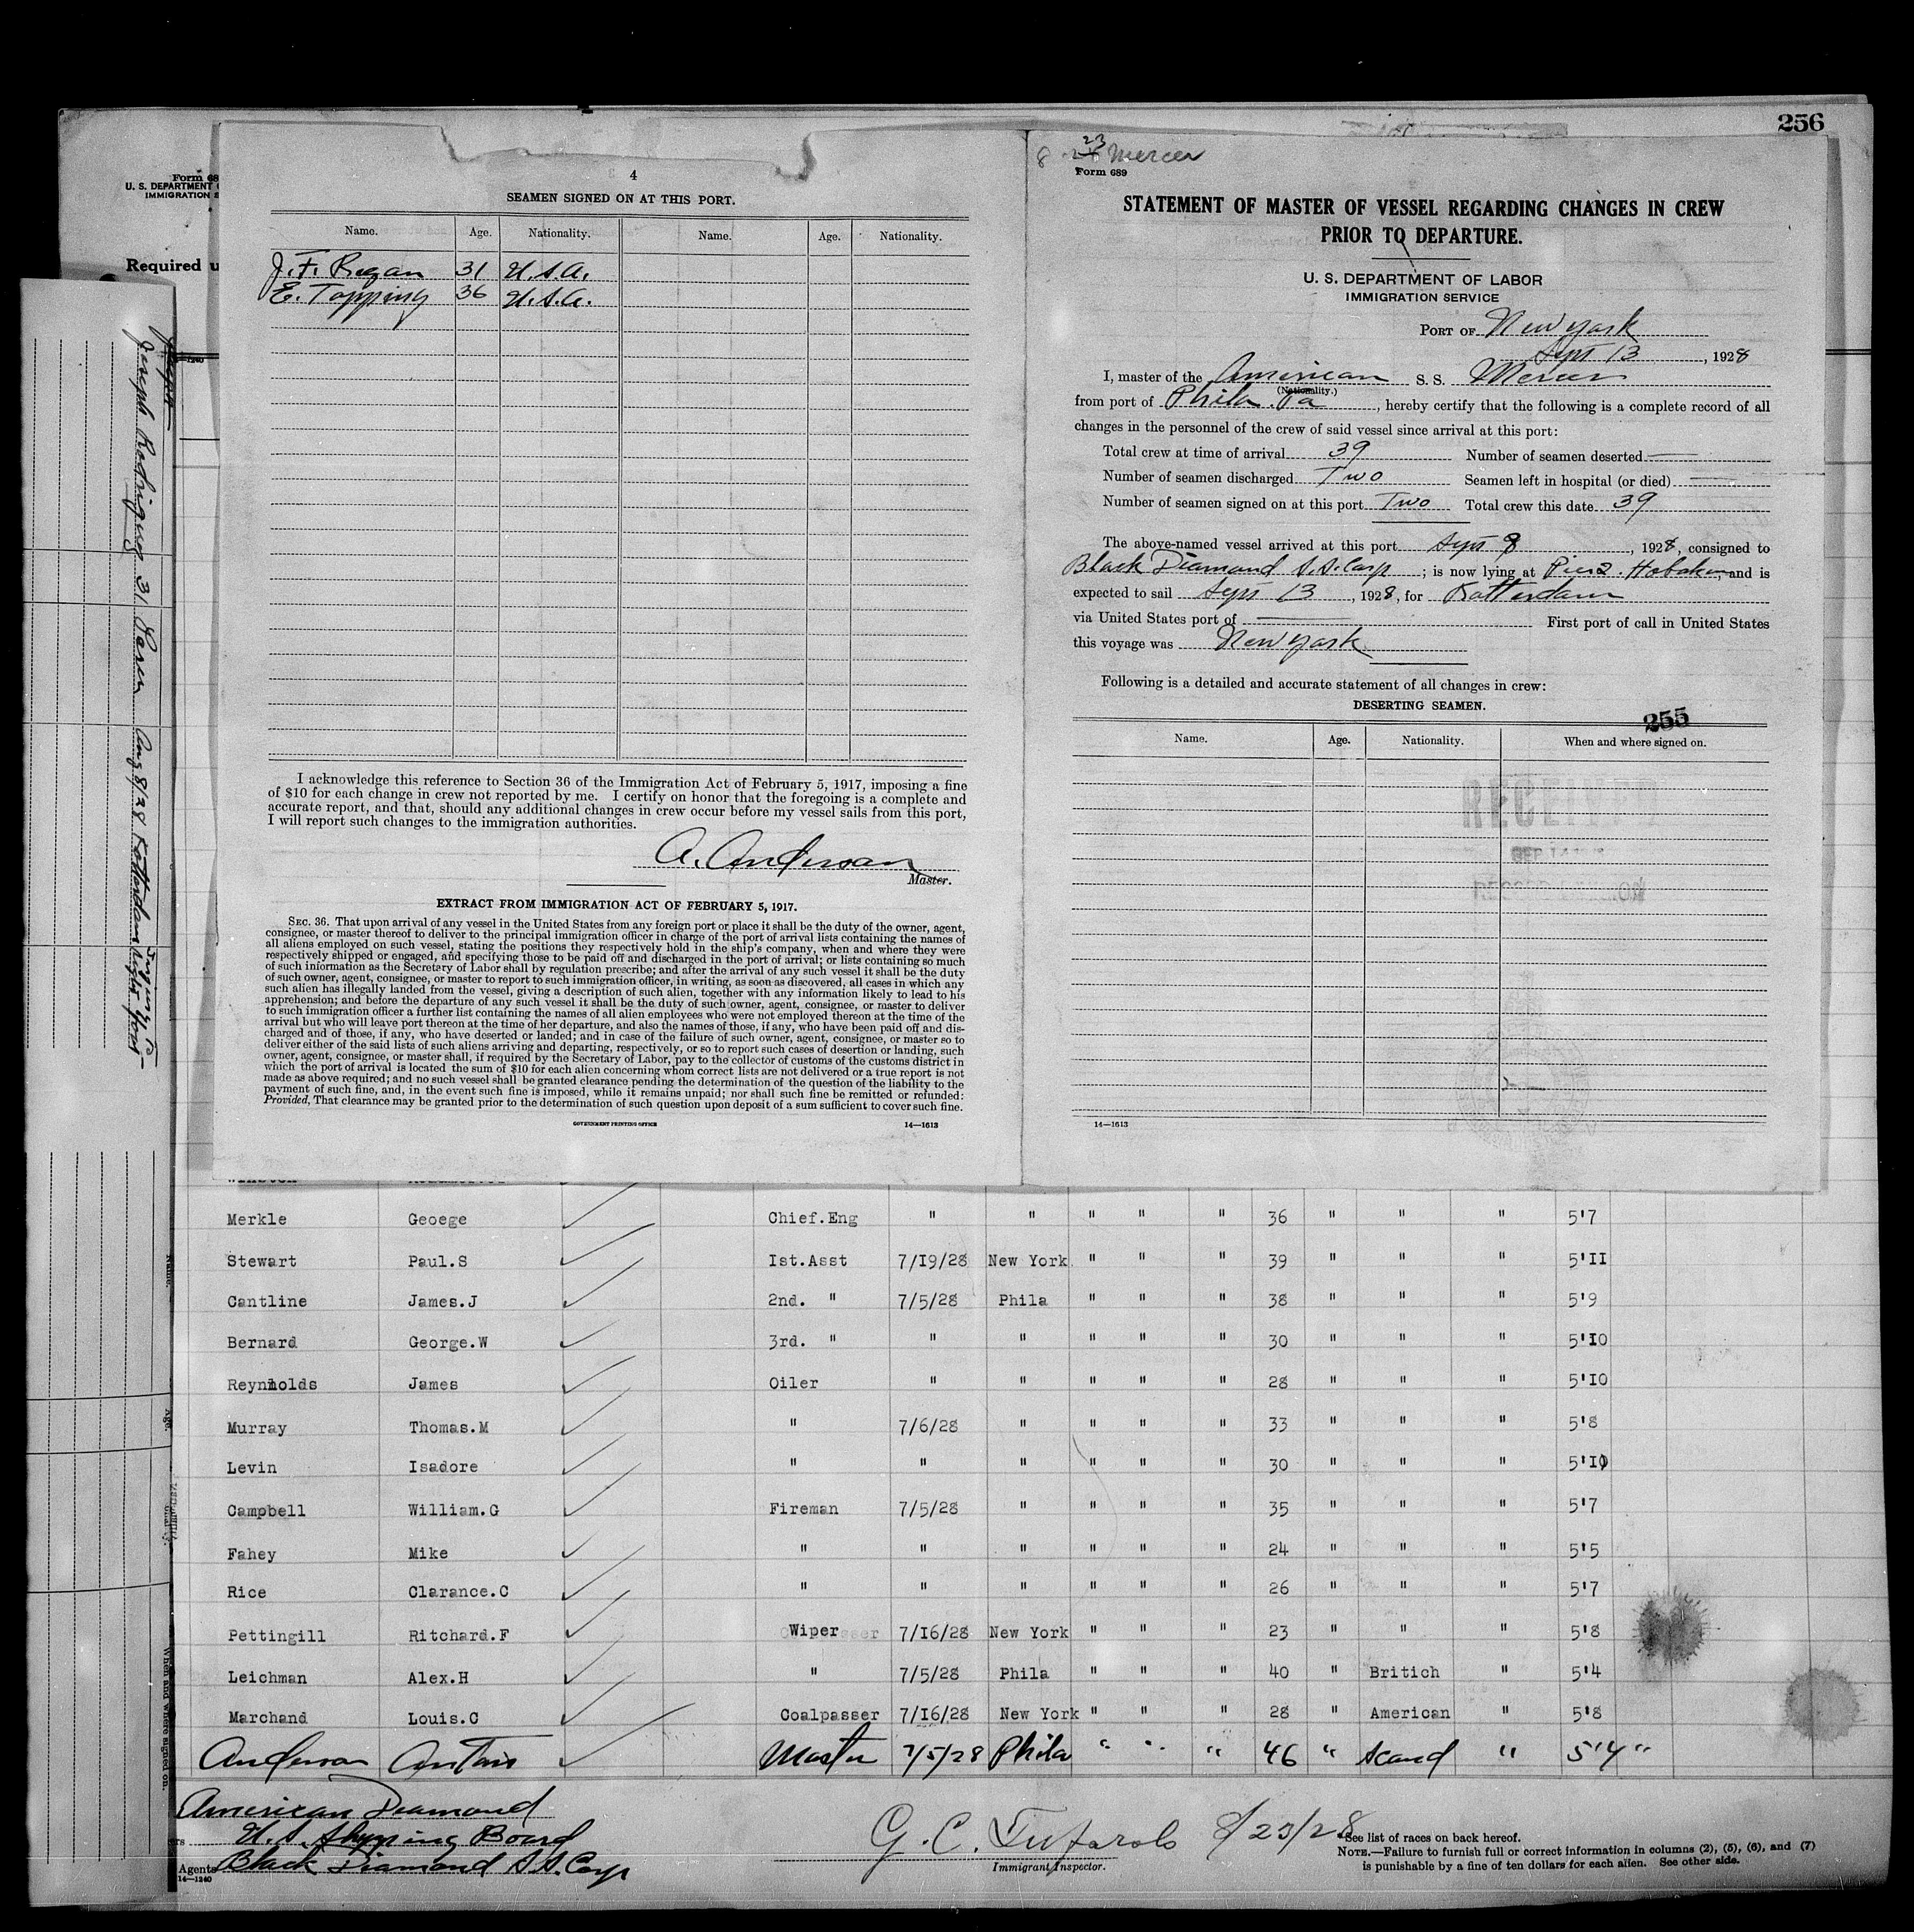 256
Form 68
U. S. DEPARTMENT
IMMIGRATION S
Required u
4
SEAMEN SIGNED ON AT THIS PORT.
Name. Age. Nationality. Name. Age. Nationality.
J. F. Regan 31 U.S.A.
E. Topping 36 U.S.A.
I acknowledge this reference to Section 36 of the Immigration Act of February 5, 1917, imposing a fine
of $10 for each change in crew not reported by me. I certify on honor that the foregoing is a complete and
accurate report, and that, should any additional changes in crew occur before my vessel sails from this port,
I will report such changes to the immigration authorities.
A. Anderson
Master.
EXTRACT FROM IMMIGRATION ACT OF FEBRUARY 5, 1917.
SEC. 36. That upon arrival of any vessel in the United States from any foreign port or place it shall be the duty of the owner, agent,
consignee, or master thereof to deliver to the principal immigration officer in charge of the port of arrival lists containing the names of
all aliens employed on such vessel, stating the positions they respectively hold in the ship's company, when and where they were
respectively shipped or engaged, and specifying those to be paid off and discharged in the port of arrival; or lists containing so much
of such information as the Secretary of Labor shall by regulation prescribe; and after the arrival of any such vessel it shall be the duty
of such owner, agent, consignee, or master to report to such immigration officer, in writing, as soon as discovered, all cases in which any
such alien has illegally landed from the vessel, giving a description of such alien, together with any information likely to lead to his
apprehension; and before the departure of any such vessel it shall be the duty of such owner, agent, consignee, or master to deliver
to such immigration officer a further list containing the names of all alien employees who were not employed thereon at the time of the
arrival but who will leave port thereon at the time of her departure, and also the names of those, if any, who have been paid off and dis-
charged and of those, if any, who have deserted or landed; and in case of the failure of such owner, agent, consignee, or master so to
deliver either of the said lists of such aliens arriving and departing, respectively, or so to report such cases of desertion or landing, such
owner, agent, consignee, or master shall, if required by the Secretary of Labor, pay to the collector of customs of the customs district in
which the port of arrival is located the sum of $10 for each alien concerning whom correct lists are not delivered or a true report is not
made as above required; and no such vessel shall be granted clearance pending the determination of the question of the liability to the
payment of such fine, and, in the event such fine is imposed, while it remains unpaid; nor shall such fine be remitted or refunded:
Provided, That clearance may be granted prior to the determination of such question upon deposit of a sum sufficient to cover such fine.
GOVERNMENT PRINTING OFFICE 14—1613
23
8 Mercer
Form 689
STATEMENT OF MASTER OF VESSEL REGARDING CHANGES IN CREW
PRIOR TO DEPARTURE.
U. S. DEPARTMENT OF LABOR
IMMIGRATION SERVICE
PORT OF New York
Sept 13, 1928
I, master of the American S. S. Mercer
(Nationality.)
from port of Phila. Pa, hereby certify that the following is a complete record of all
changes in the personnel of the crew of said vessel since arrival at this port:
Total crew at time of arrival 39 Number of seamen deserted —
Number of seamen discharged Two Seamen left in hospital (or died) —
Number of seamen signed on at this port Two Total crew this date 39
The above-named vessel arrived at this port Sept 8, 1928, consigned to
Black Diamond S.S. Corp; is now lying at Pier 2. Hoboken, and is
expected to sail Sept 13, 1928, for Rotterdam
via United States port of — First port of call in United States
this voyage was New York
Following is a detailed and accurate statement of all changes in crew:
DESERTING SEAMEN.
255
Name. Age. Nationality. When and where signed on.
RECEIVED
14—1613
Joseph Rodriguez 31 Aug 8/28 Rotterdam
Name.
Age.
When and where signed on.
Merkle Geoege Chief.Eng " " " " " 36 " " " 5'7
Stewart Paul.S Ist.Asst 7/I9/28 New York " " " 39 " " " 5'II
Cantline James.J 2nd. " 7/5/28 Phila " " " 38 " " " 5'9
Bernard George.W 3rd. " " " " " " 30 " " " 5'IO
Reynholds James Oiler " " " " " 28 " " " 5'IO
Murray Thomas.M " 7/6/28 " " " " 33 " " " 5'8
Levin Isadore " " " " " " 30 " " " 5'IO
Campbell William.G Fireman 7/5/28 " " " " 35 " " " 5'7
Fahey Mike " " " " " " 24 " " " 5'5
Rice Clarance.C " " " " " " 26 " " " 5'7
Pettingill Ritchard.F Wiper 7/I6/28 New York " " " 23 " " " 5'8
Leichman Alex.H " 7/5/28 Phila " " " 40 " Britich " 5'4
Marchand Louis.C Coalpasser 7/I6/28 New York " " " 28 " American " 5'8
Anderson Master 7/5/28 Phila " " " 46 " Scand " 5'4"
American Diamond
U.S. Shipping Board
Agents Black Diamond S.S. Corp
14—1240
G. C. 8/23/28
Immigrant Inspector.
See list of races on back hereof.
NOTE.—Failure to furnish full or correct information in columns (2), (5), (6), and (7)
is punishable by a fine of ten dollars for each alien. See other side.